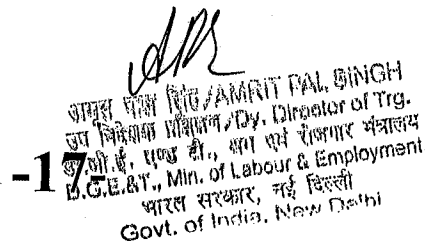 अमृत पाल सिंह/AMRIT PAL SINGH
उप निदेशक प्रशिक्षण/Dy. Director of Trg.
-17-
डी.जी.ई. एण्ड टी., श्रम एवं रोजगार मंत्रालय
D.G.E.&T., Min. of Labour & Employment
भारत सरकार, नई दिल्ली
Govt. of India, New Delhi